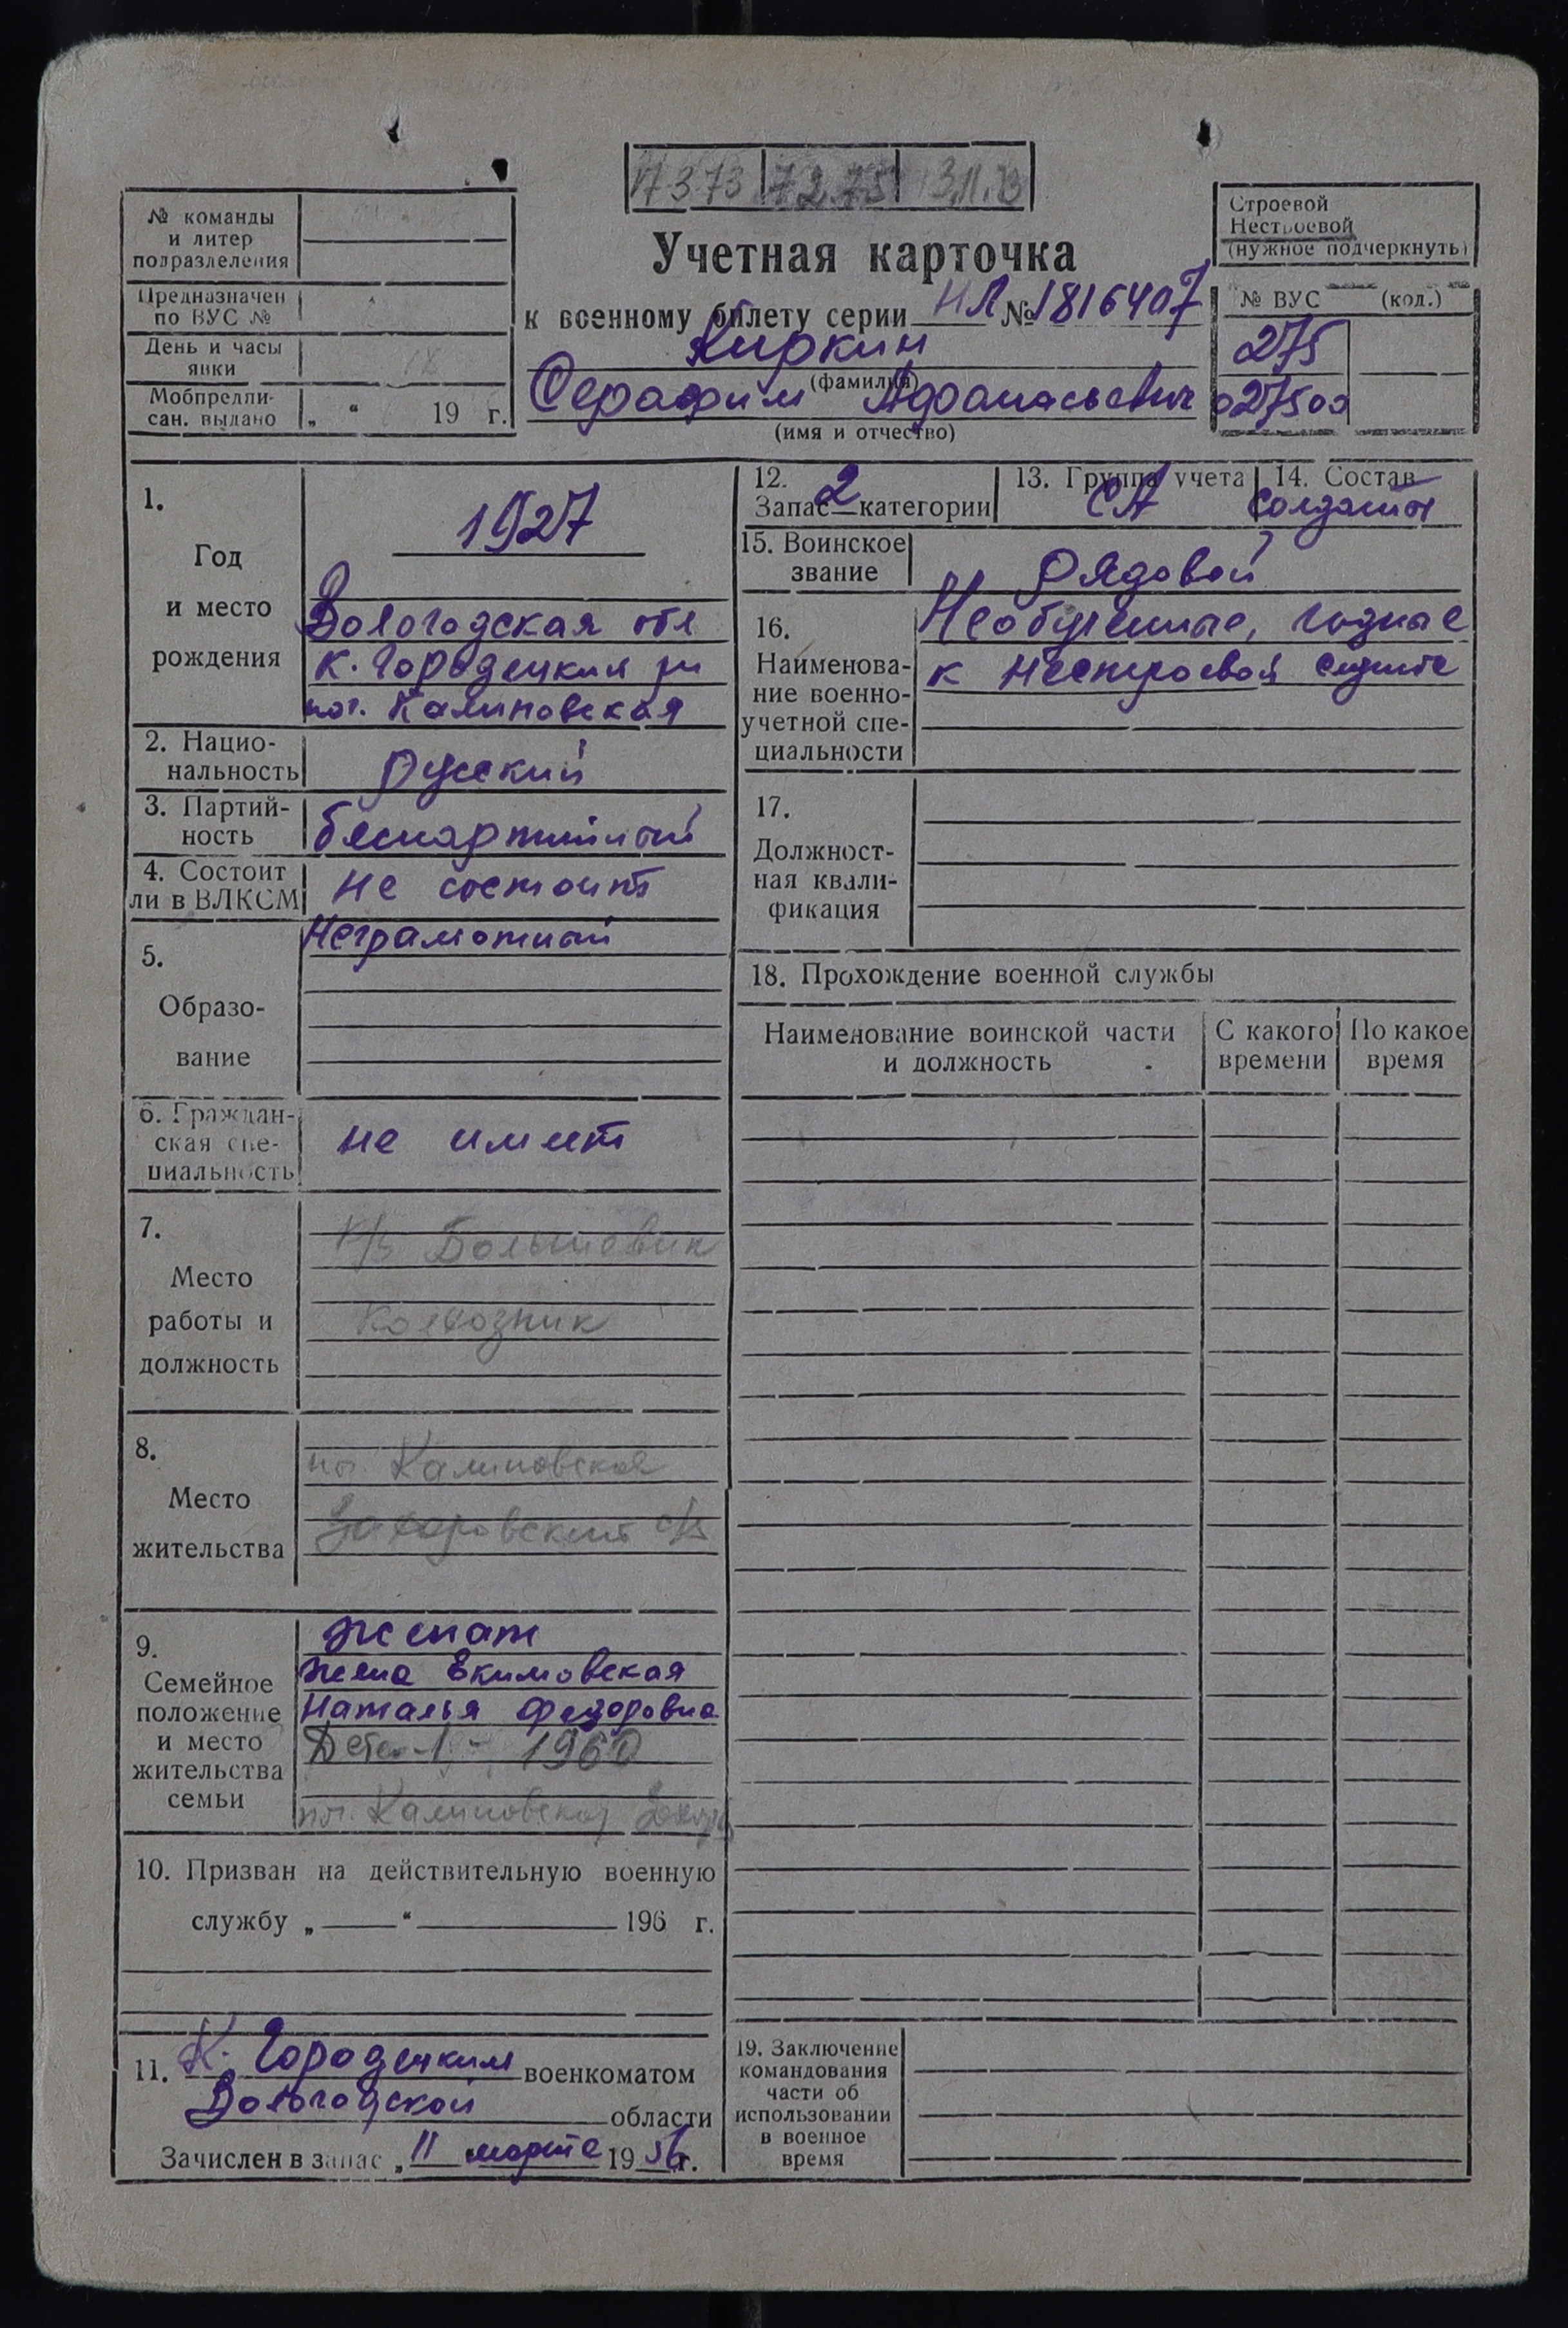 7373 72.75 3.11.73
№ команды
и литер
подразделения
Предназначен
по ВУС №
День и часы
явки
Мобпредпи-
сан. выдано „ “ 19 г.
Учетная карточка
к военному билету серии НЛ № 1816407
Киркин
(фамилия)
Серафим Афанасьевич
(имя и отчество)
Строевой
Нестроевой
(нужное подчеркнуть)
№ ВУС (код.)
275
027500
1.
Год
и место
рождения
1927
Вологодская обл
К. Городецкий рн
поч. Калиновская
2. Нацио-
нальность
русский
3. Партий-
ность
беспартийный
4. Состоит
ли в ВЛКСМ
не состоит
5.
Образо-
вание
Неграмотный
6. Граждан-
ская спе-
циальность
не имеет
7.
Место
работы и
должность
к/з Большевик
колхозник
8.
Место
жительства
Калиновская
Захаровский с/с
9.
Семейное
положение
и место
жительства
семьи
женат
жена Екимовская
Наталья Федоровна
Дети-1- 1960
Калиновская
10. Призван на действительную военную
службу „ “ 196 г.
11. К. Городецким военкоматом
Вологодской области
Зачислен в запас „11 марта 1956 г.
12.
Запас 2 категории
13. Группа учета
СА
14. Состав
солдаты
15. Воинское
звание
рядовой
16.
Наименова-
ние военно-
учетной спе-
циальности
Необученные, годные
к нестроевой службе
17.
Должност-
ная квали-
фикация
18. Прохождение военной службы
Наименование воинской части
и должность
С какого
времени
По какое
время
19. Заключение
командования
части об
использовании
в военное
время